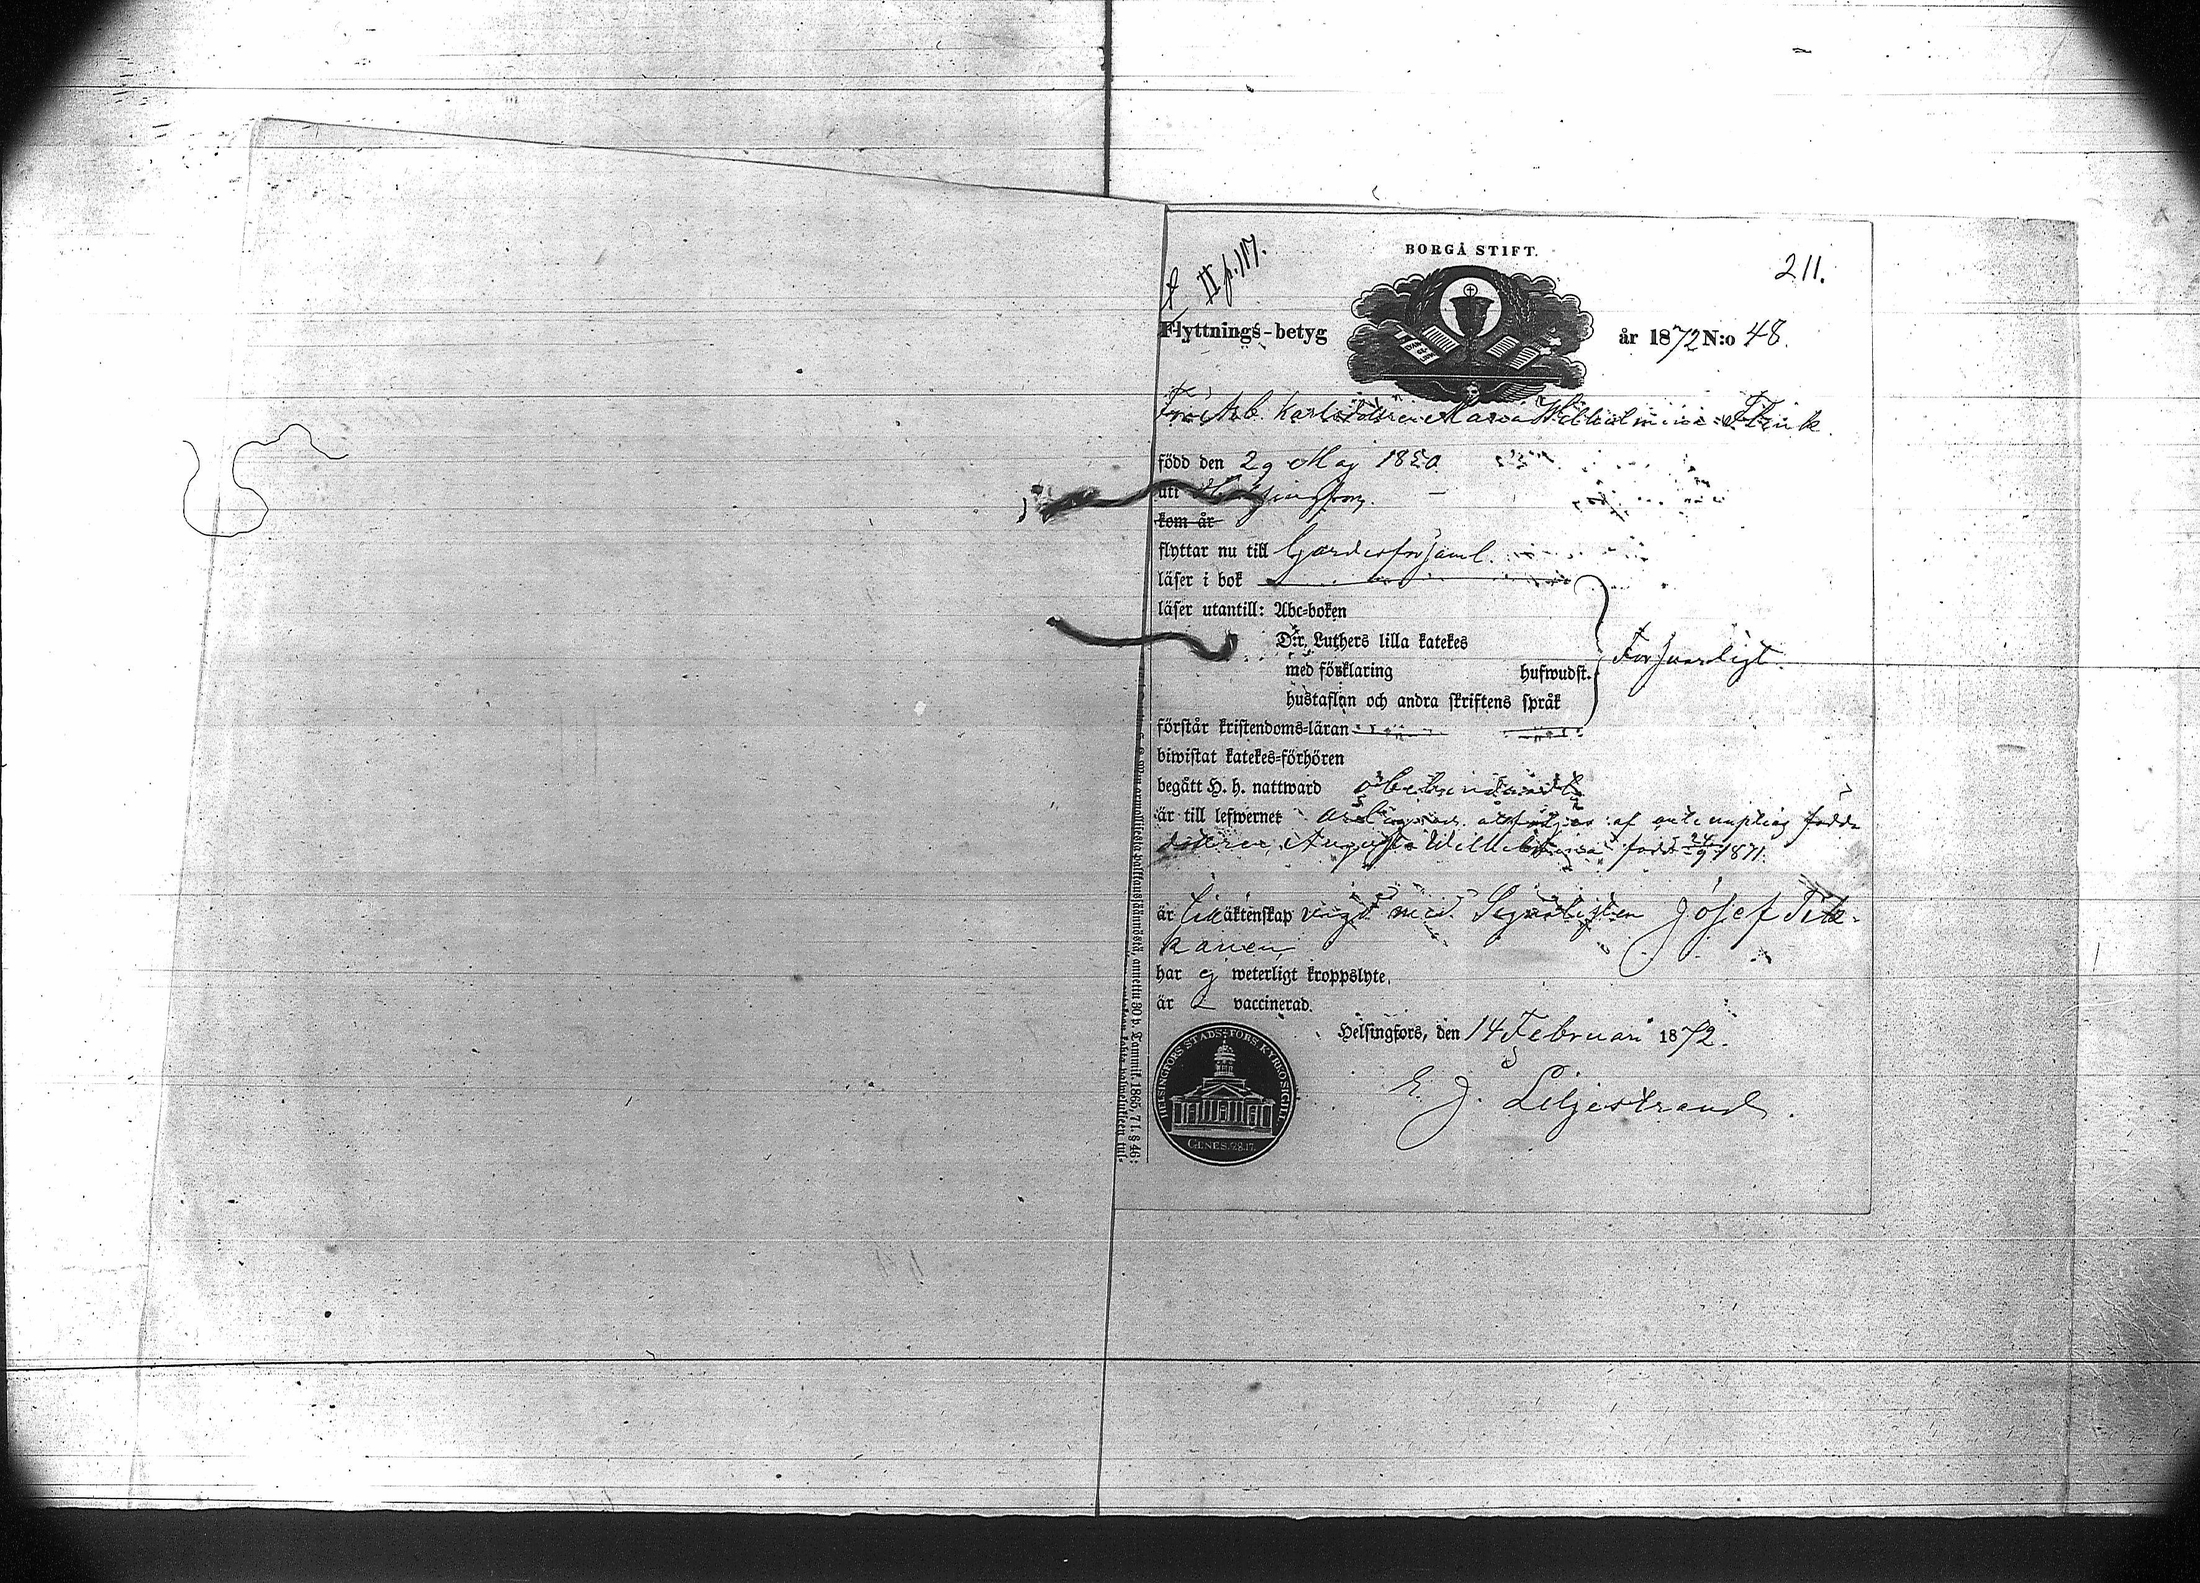 II p. 117.
BORGÅ STIFT.
211.
Flyttnings-betyg
år 1872 N:o 48.
Arb. Karlsdottren Maria Wilhelmina Flink
född den 29 Maj 1850
uti Helsingfors
kom år
flyttar nu till Gardesförsaml.
läser i bok
läser utantill: Abc-boken
D:r Luthers lilla katekes
med förklaring hufwudst.
hustaflan och andra skriftens språk
Försvarligt.
förstår kristendoms-läran
biwistat katekes-förhören
begått H. h. nattward obehindradt
är till lefwernet åtföljes af ante nuptias födda
dottren Augusta Wilhelmina född 24/9 1871.
är till äktenskap vigd med Signalisten Josef Tik-
kanen
har ej weterligt kroppslyte.
är vaccinerad.
Helsingfors, den 14 Februari 1872.
E. J. Liljestrand.
HELSINGFORS STADS-FÖRS. KYRKO SIGILL.
GENES. 28.17.